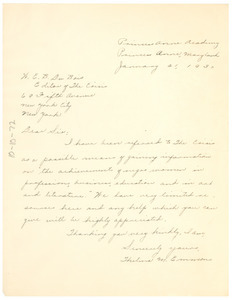 Princess Anne Academy
Princess Anne, Maryland
January 2, 1931
W. E. B. Du Bois
Editor of The Crisis
69 Fifth Avenue
New York City
New York
Dear Sir,
I have been referred to The Crisis
as a possible means of gaining information
on the achievements of negro women in
professions, business, education and in art
and literature. We have very limited re-
sources here and any help which you can
give will be highly appreciated.
Thanking you very kindly, I am,
Sincerely yours,
Thelma M.